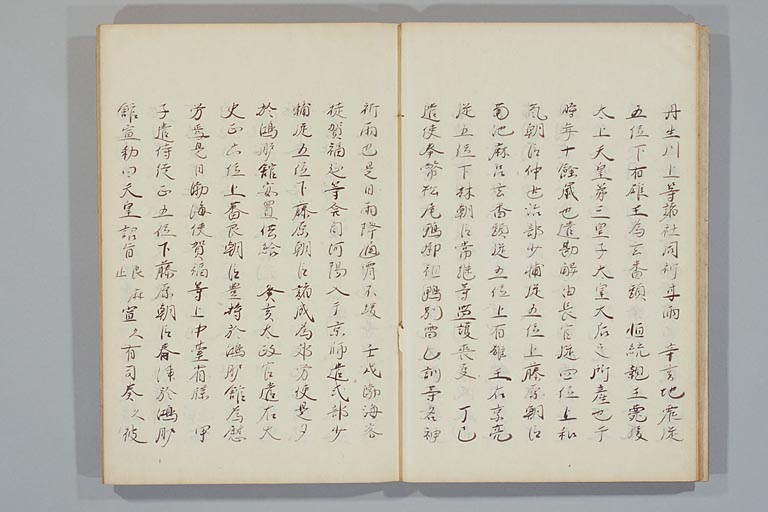 丹生川上等諸社同祈甘雨 辛亥地震従
五位下有雄王為玄番頭 恒統親王薨
太上天皇第三皇子太皇大后之所產也于
時年十餘歲也遣勘解由長官従四位上和
氣朝臣仲世治部少輔従五位上藤原朝臣
菊池麻呂玄番頭従五位上有雄王右京亮
従五位下林朝臣常継等監護喪事 丁巳
遣使奉幣松尾鴨御祖鴨別雷乙訓等名神
祈雨也是日雨降 壬戌渤海客
徒賀福延等合自河陽入于京師遣式部少
輔従五位下藤原朝臣諸成為郊勞使是夕
於鴻臚館安置供給 癸亥太政官遣右大
史正六位上蕃良朝臣豊持於鴻臚館為慰
勞焉是日渤海使賀福等上中臺省牒 甲
子遣侍従正五位下藤原朝臣春津於鴻臚
館宣勅曰天皇詔旨良麻止宣久有司奏久彼